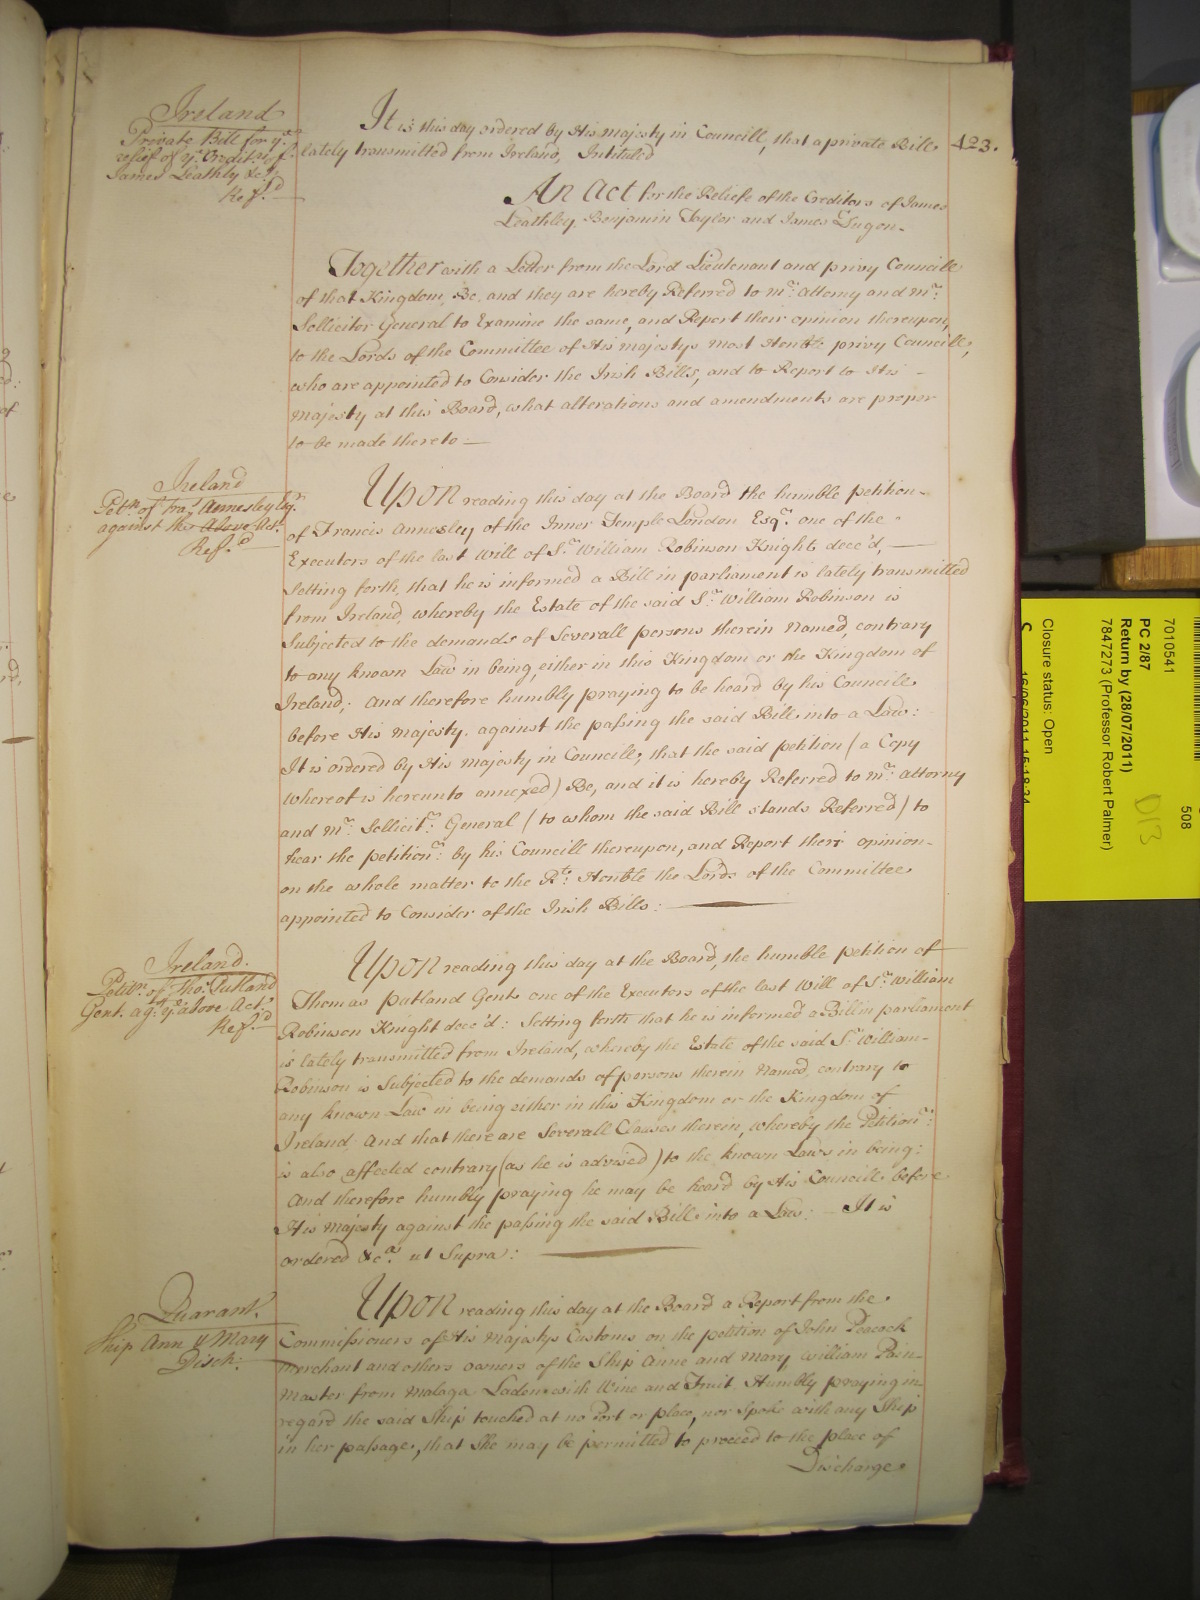 423.
Ireland
Private Bill for ye.
relief of ye. Creditrs. of
James Leathly &c.
Ref.d
It is this day ordered by His majesty in Councill, that a private Bill
lately transmitted from Ireland, Intituled
An Act for the Reliefe of the Creditors of James
Leathley, Benjamin Taylor and James
Together with a Letter from the Lord Lieutenant and privy Councill
of that Kingdom, Be, and they are hereby Referred to mr. attorny and mr.
Sollicitor General to Examine the same, and Report their opinion thereupon,
to the Lords of the Committee of His majestys most Honble privy Councill,
who are appointed to Consider the Irish Bills, and to Report to His
majesty at this Board, what alterations and amendments are proper
to be made thereto
Ireland
Petn. of Fra: Annesley Esqr.
against the Above Act.
Ref.d
Upon reading this day at the Board the humble petition
of Francis Annesley of the Inner Temple London Esqr. one of the
Executors of the last Will of Sr. William Robinson Knight dece'd,
Setting forth, that he is informed a Bill in parliament is lately transmitted
from Ireland, whereby the Estate of the said Sr. William Robinson is
Subjected to the demands of Severall persons therein Named, contrary
to any known Law in being, either in this Kingdom or the Kingdom of
Ireland; And therefore humbly praying to be heard by his Councill
before His majesty, against the passing the said Bill into a Law:
It is ordered by His majesty in Councill, that the said petition (a Copy
whereof is hereunto annexed) Be, and it is hereby Referred to mr. attorny
and mr. Sollicitr. General (to whom the said Bill stands Referred) to
hear the petitionr. by his Councill thereupon, and Report their opinion
on the whole matter to the Rt. Honble the Lords of the Committee
appointed to Consider of the Irish Bills:
Ireland.
Petitn. of Tho: Putland
Gent. agt. ye. above Act.
Ref.d
Upon reading this day at the Board, the humble petition of
Thomas Putland Gent. one of the Executors of the last Will of Sr. William
Robinson Knight dece'd: Setting forth that he is informed a Bill in parliament
is lately transmitted from Ireland, whereby the Estate of the said Sr. William
Robinson is Subjected to the demands of persons therein Named, contrary to
any known Law in being either in this Kingdom or the Kingdom of
Ireland And that there are Severall Clauses therein, whereby the Petitionr.
is also affected contrary (as he is advised) to the known Laws in being:
And therefore humbly praying he may be heard by His Councill before
His majesty against the passing the said Bill into a Law: It is
ordered &ca. ut Supra:
Quarant.
Ship Ann & Mary
Disch:
Upon reading this day at the Board a Report from the
Commissioners of His Majestys Customs on the petition of John Peacock
merchant and others owners of the Ship Anne and Mary, William Pain
Master from Malaga Laden with Wine and Fruit Humbly praying in
regard the said Ship touched at no Port or place, nor Spoke with any Ship
in her passage, that she may be permitted to proceed to the place of
Discharge
7010541
508
PC 2/87
Return by (28/07/2011)
7847273 (Professor Robert Palmer)
D13
Closure status: Open
16/06/2011 15:18:34